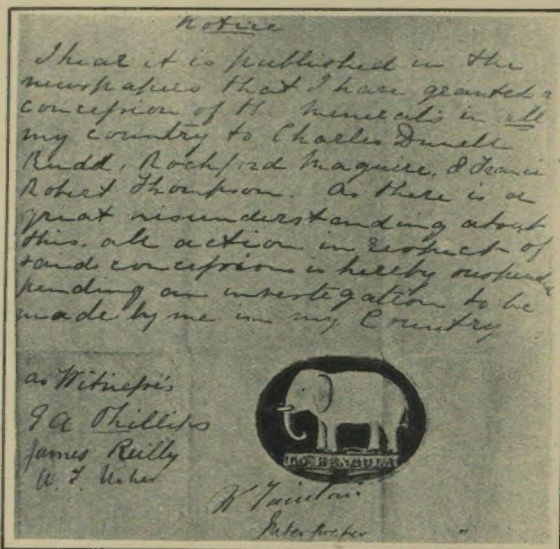 Notice
I hear it is published in the
newspapers that I have granted a
concession of the minerals in all
my country to Charles Dunell
Rudd, Rochford Maguire, & Francis
Robert Thompson. As there is a
great misunderstanding about
this, all action in respect of
said concession is hereby suspended
pending an investigation to be
made by me in my Country
as Witnesses
G A Phillips
James Reilly
W. F. Usher
W Tainton
Interpreter